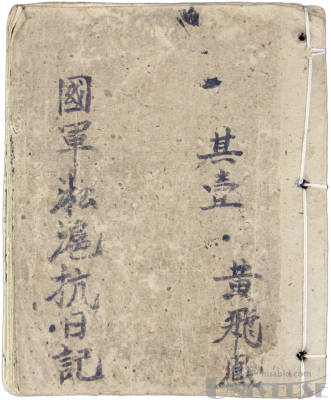 其壹·黃飛鳳
國軍淞滬抗·日記
UNIVERSE